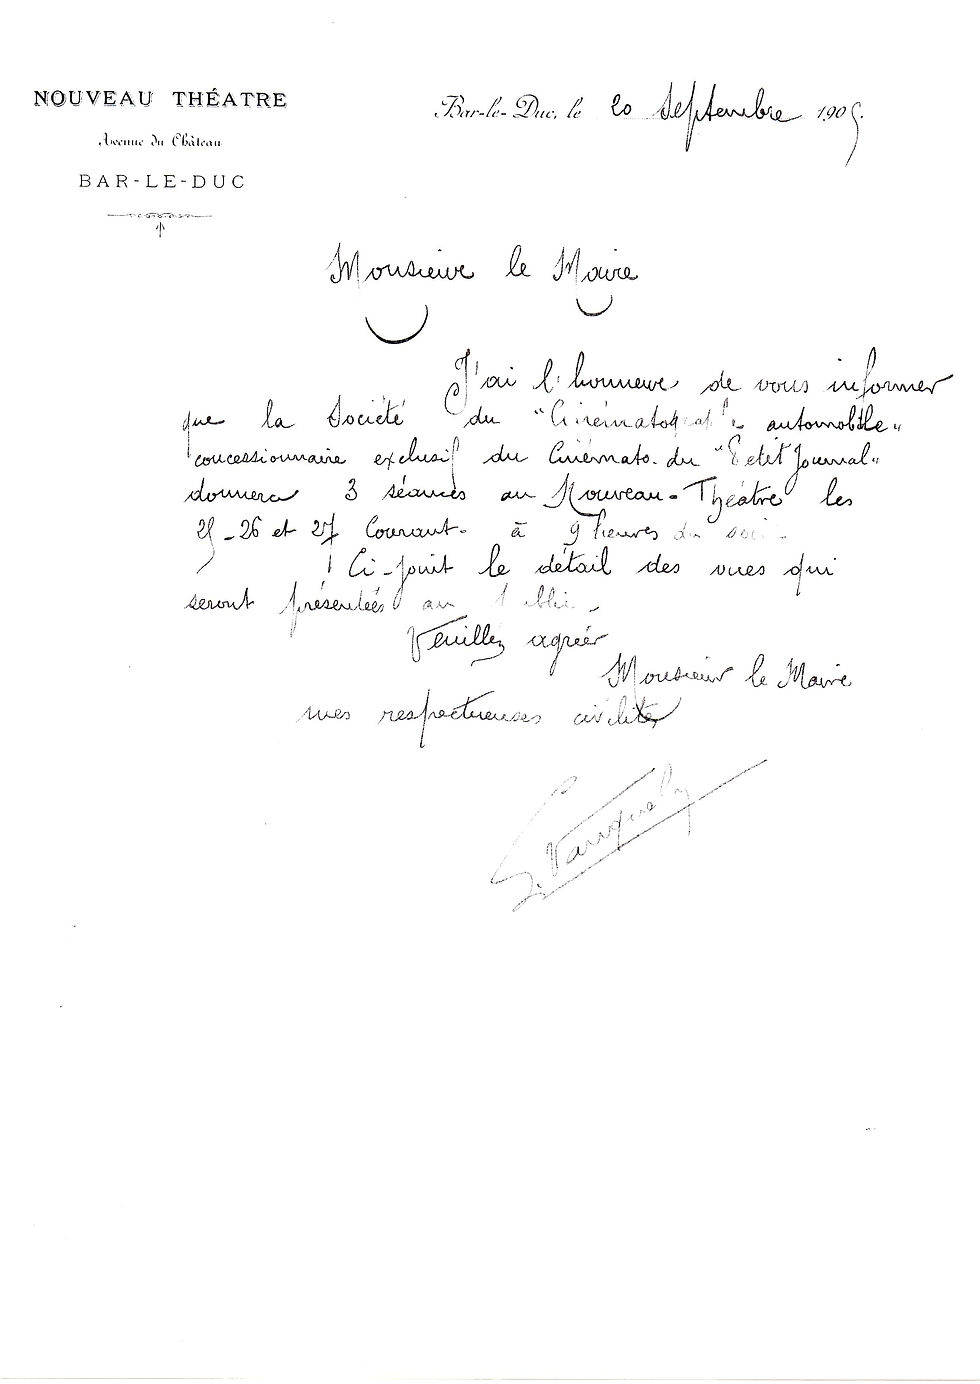 NOUVEAU THÉATRE
Avenue du Château
BAR-LE-DUC
Bar-le-Duc, le 20 Septembre 1905.
Monsieur le Maire
J'ai l'honneur de vous informer
que la Société du "Cinématograph" automobile"
concessionnaire exclusif du Cinémato. du "Petit Journal"
donnera 3 séances au Nouveau-Théâtre les
25-26 et 27 Courant- à 9 heures du soir.
Ci-joint le détail des vues qui
seront présentées au
Veuillez agréer
Monsieur le Maire
mes respectueuses civilités